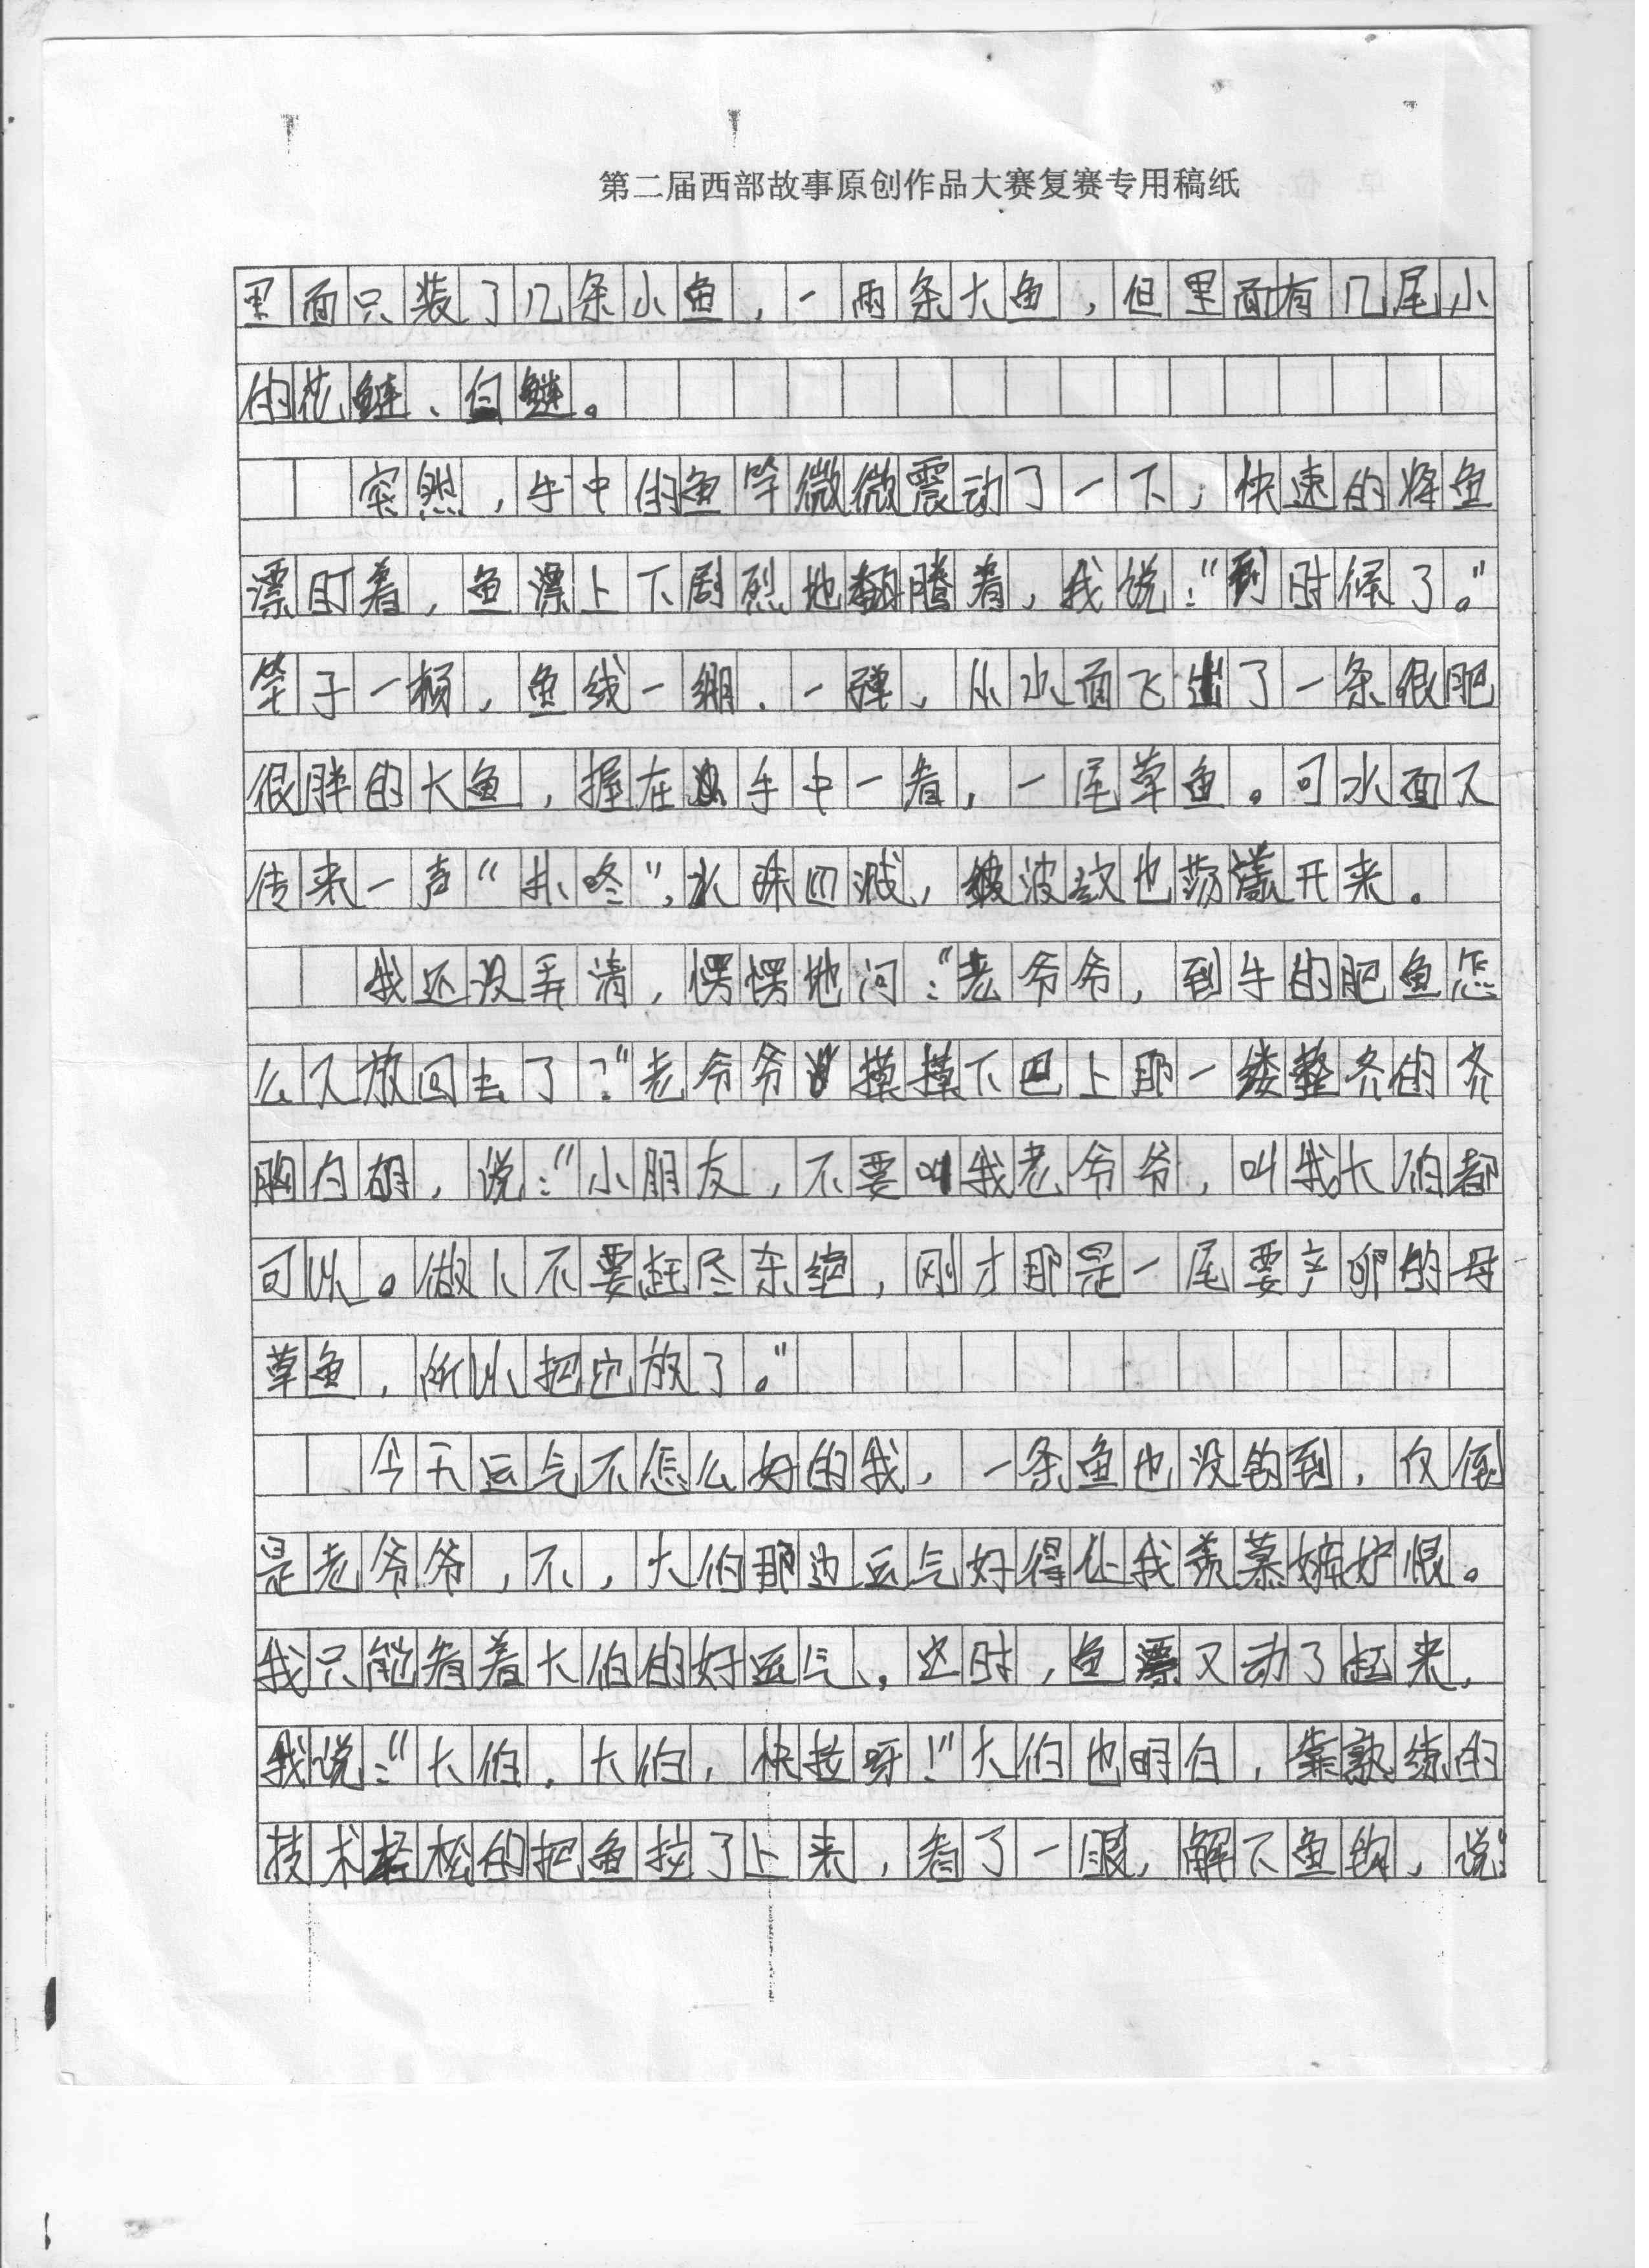 第二届西部故事原创作品大赛复赛专用稿纸
里面只装了几条小鱼，一两条大鱼，但里面有几尾小
的花鲢、白鲢。
突然，手中的鱼竿微微震动了一下，快速的将鱼
漂盯着，鱼漂上下剧烈地翻腾着，我说：“到时候了。”
竿子一扬，鱼线一绷，一弹，从水面飞出了一条很肥
很胖的大鱼，握在手中一看，一尾草鱼。可水面又
传来一声“扑咚”，水珠四溅，波纹也荡漾开来。
我还没弄清，愣愣地问：“老爷爷，到手的肥鱼怎
么又放回去了？”老爷爷摸摸下巴上那一缕整齐的齐
胸白胡，说：“小朋友，不要叫我老爷爷，叫我大伯都
可以。做人不要赶尽杀绝，刚才那是一尾要产卵的母
草鱼，所以把它放了。”
今天运气不怎么好的我，一条鱼也没钓到，仅倒
是老爷爷，不，大伯那边运气好得让我羡慕嫉妒恨。
我只能看着大伯的好运气。这时，鱼漂又动了起来，
我说：“大伯，大伯，快拉呀！”大伯也明白，靠熟练的
技术轻松的把鱼拉了上来，看了一眼，解下鱼钩，说：